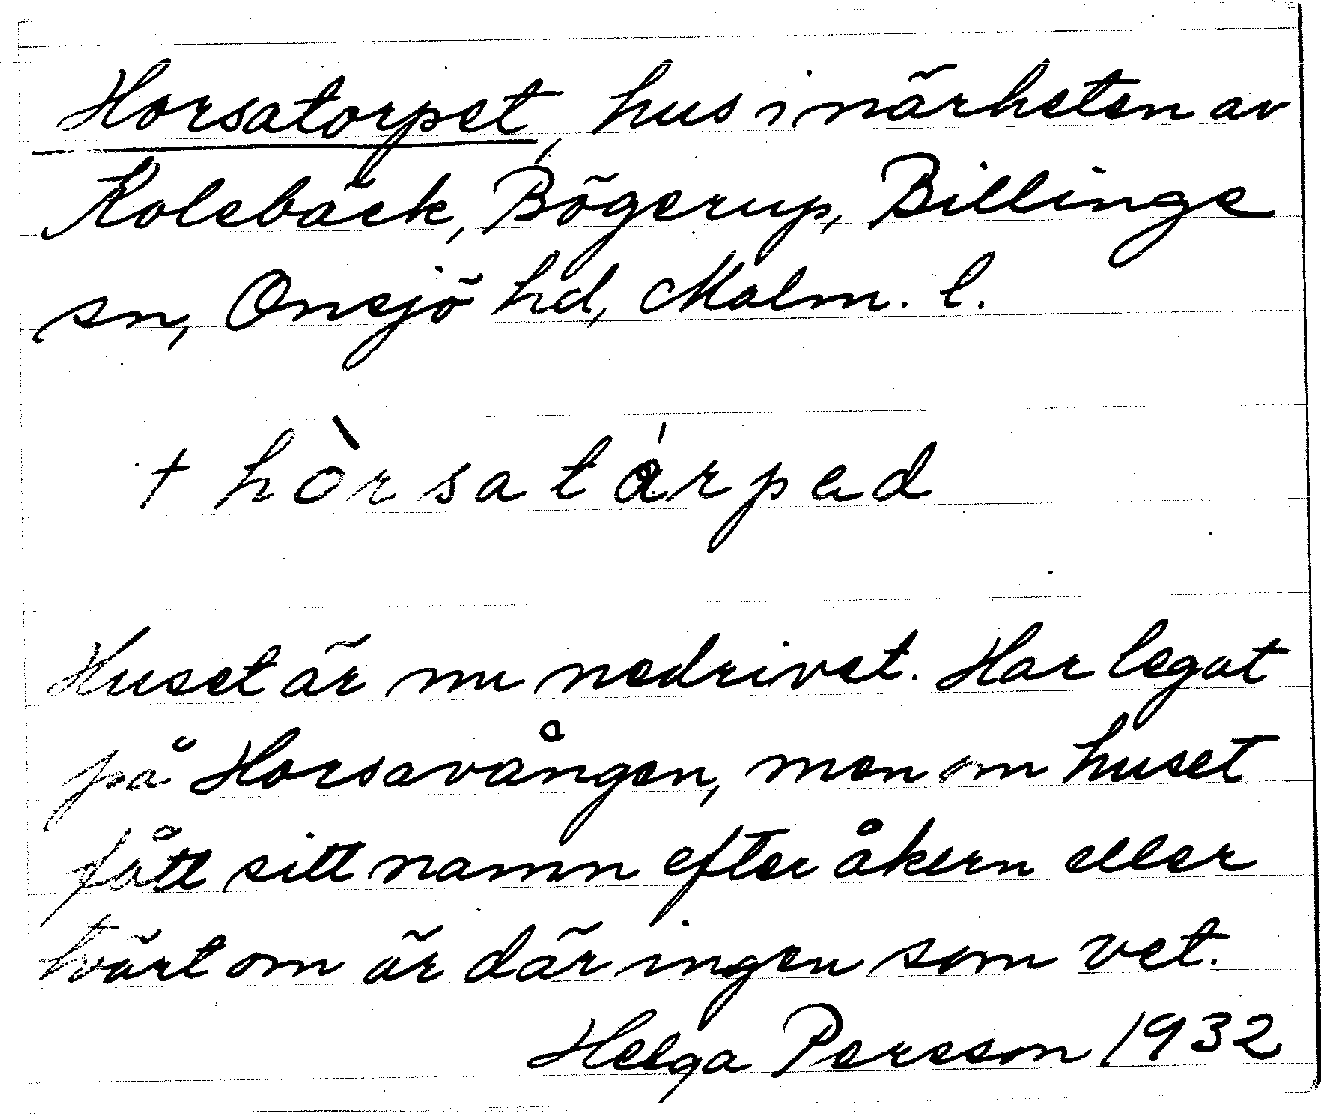 Horsatorpet, hus i närheten av
Kolebäck, Bögerup, Billinge
sn, Onsjö hd, Malm. l.
+ hòrsatårped
Huset är nu nedrivet. Har legat
på Horsavången, men om huset
fått sitt namn efter åkern eller
tvärt om är där ingen som vet.
Helga Persson 1932